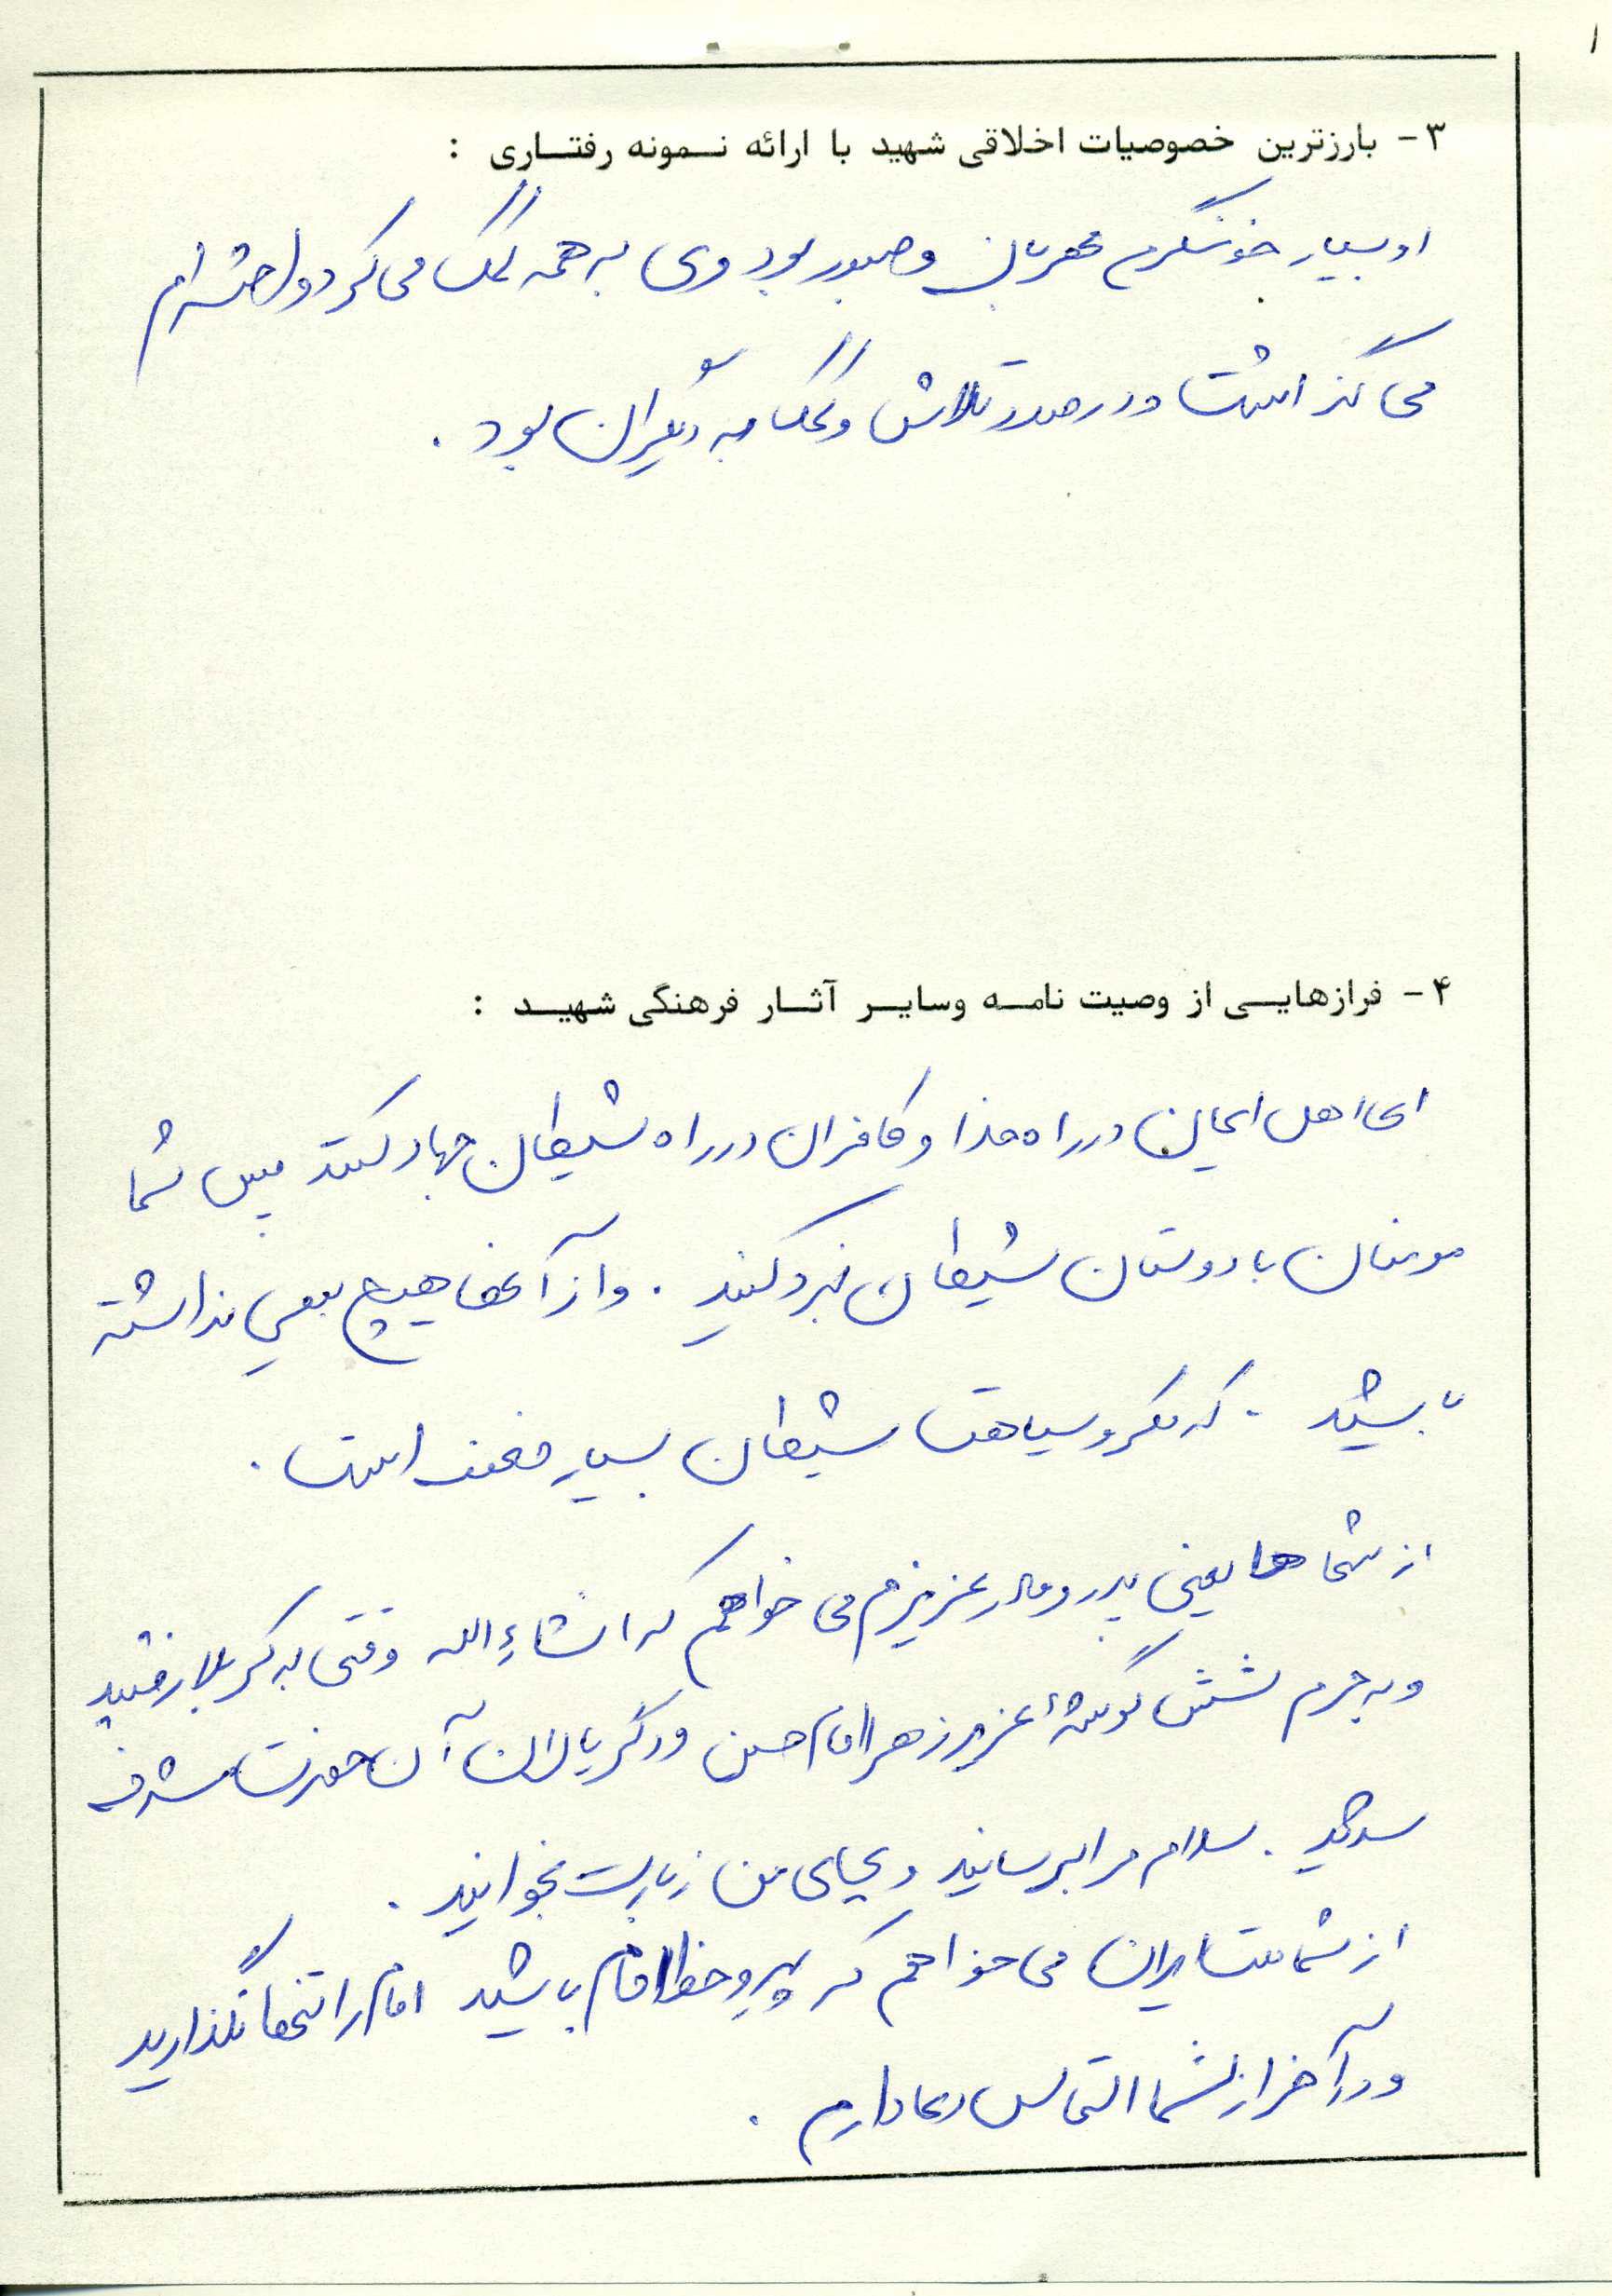 ۳- بارزترین خصوصیات اخلاقی شهید با ارائه نمونه رفتاری :
او بسیار خونگرم مهربان و صبور بود وی به همه کمک می کرد و احترام
می گذاشت و در صدد تلاش و کمک به دیگران بود .
۴- فرازهایی از وصیت نامه وسایر آثار فرهنگی شهید :
ای اهل ایمان در راه خدا و کافران در راه شیطان جهاد کنند پس شما
مومنان با دوستان شیطان نبرد کنید . و از آنها هیچ بیمی نداشته
باشید . که مکر و سیاهت شیطان بسیار ضعیف است .
از شماها یعنی پدر و مادر عزیزم می خواهم که انشاءالله وقتی به کربلا رفتید
و به حرم شش گوشۀ عزیز زهرا امام حسین و دگر یاران آن حضرت مشرف
شدید . سلام مرا برسانید و بجای من زیارت بخوانید .
از شما ملت ایران می خواهم که پیرو خط امام باشید امام را تنها نگذارید
و در آخر از شما التماس دعا دارم .